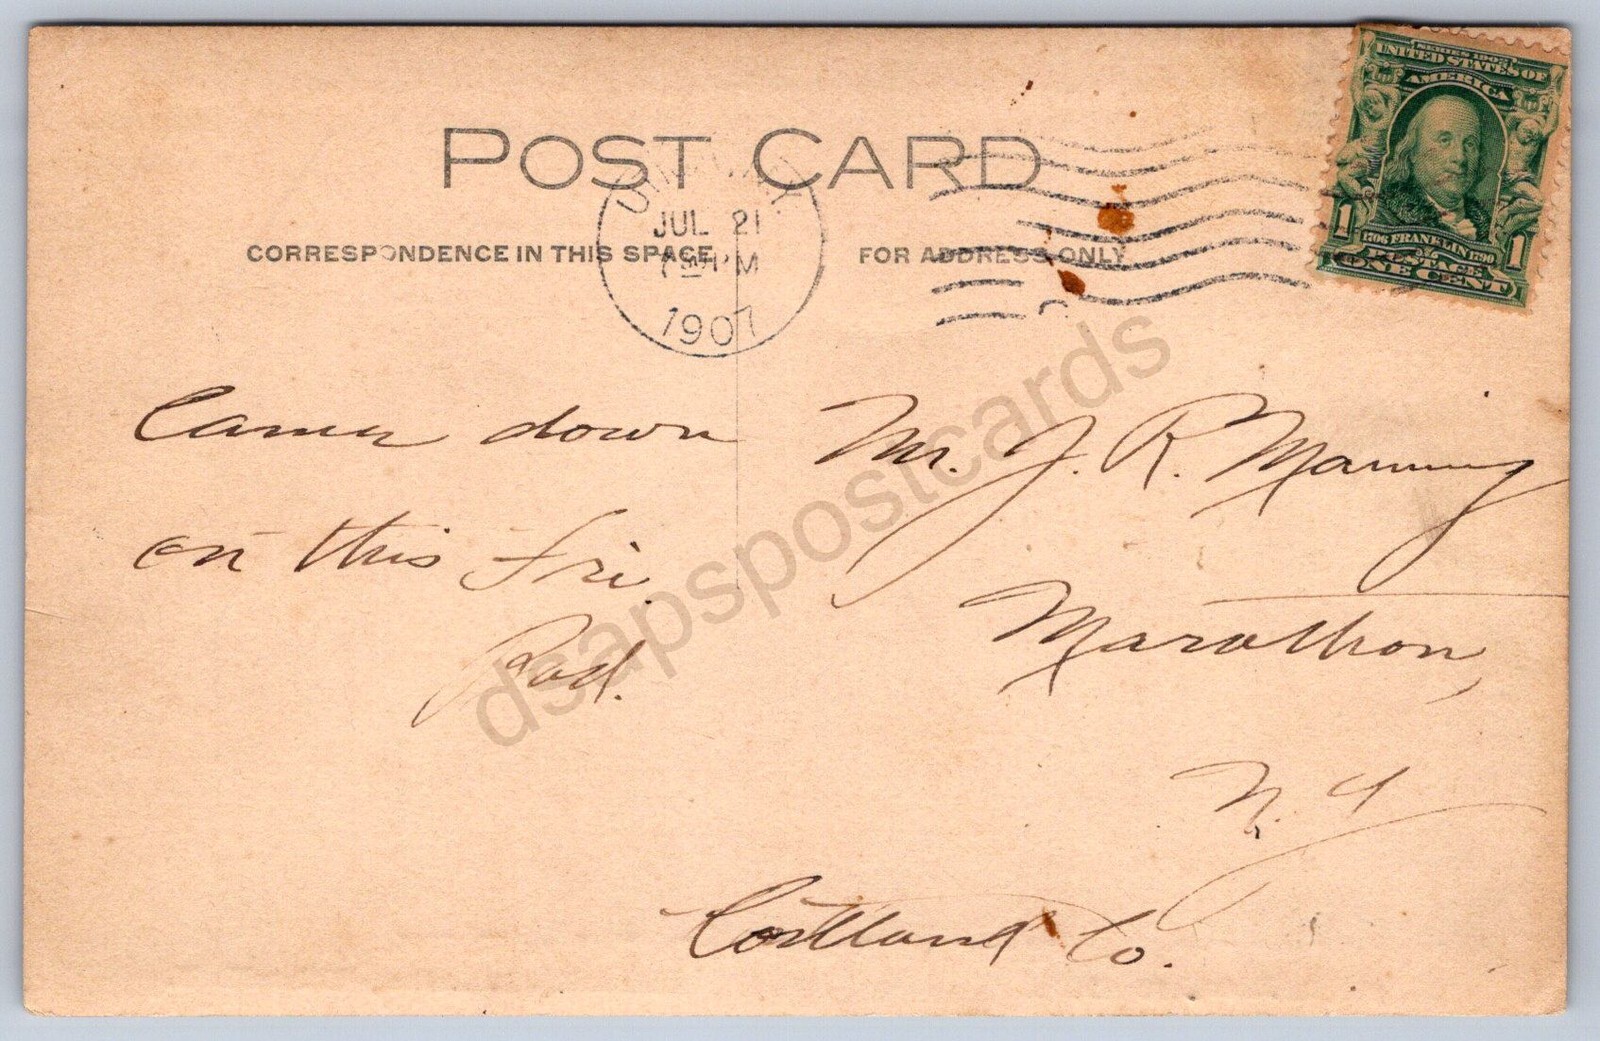 SERIES 1902
UNITED STATES OF
AMERICA
1 1
1706 FRANKLIN 1790
POSTAGE
ONE CENT
POST CARD
JUL 21
PM
1907
CORRESPONDENCE IN THIS SPACE
FOR ADDRESS ONLY
Came down
on this Fri.
Rod.
Mr. J. R. Manning
Marathon,
N. Y
Cortland Co.
dsapspostcards